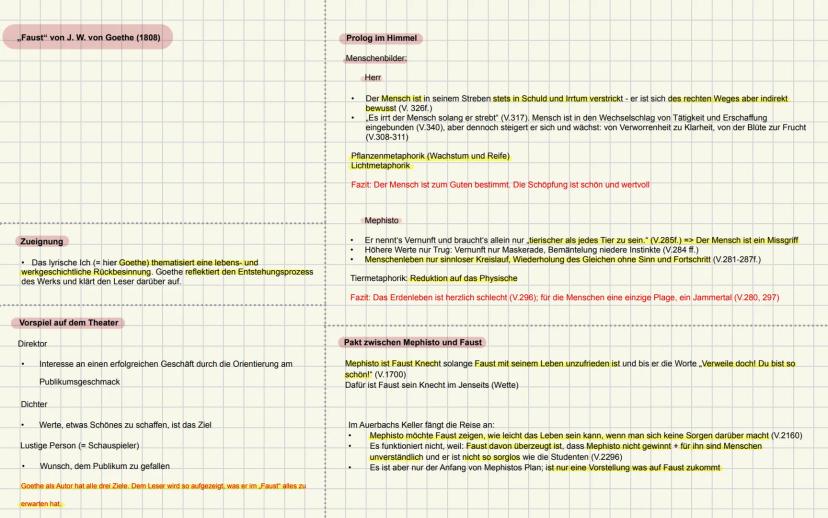 „Faust“ von J. W. von Goethe (1808)
Zueignung
• Das lyrische Ich (= hier Goethe) thematisiert eine lebens- und
werkgeschichtliche Rückbesinnung. Goethe reflektiert den Entstehungsprozess
des Werks und klärt den Leser darüber auf.
Vorspiel auf dem Theater
Direktor
• Interesse an einen erfolgreichen Geschäft durch die Orientierung am
Publikumsgeschmack
Dichter
• Werte, etwas Schönes zu schaffen, ist das Ziel
Lustige Person (= Schauspieler)
• Wunsch, dem Publikum zu gefallen
Goethe als Autor hat alle drei Ziele. Dem Leser wird so aufgezeigt, was er im „Faust“ alles zu
erwarten hat.
Prolog im Himmel
Menschenbilder:
Herr
• Der Mensch ist in seinem Streben stets in Schuld und Irrtum verstrickt - er ist sich des rechten Weges aber indirekt
bewusst (V. 326f.)
• „Es irrt der Mensch solang er strebt“ (V.317). Mensch ist in den Wechselschlag von Tätigkeit und Erschaffung
eingebunden (V.340), aber dennoch steigert er sich und wächst: von Verworrenheit zu Klarheit, von der Blüte zur Frucht
(V.308-311)
Pflanzenmetaphorik (Wachstum und Reife)
Lichtmetaphorik
Fazit: Der Mensch ist zum Guten bestimmt. Die Schöpfung ist schön und wertvoll
Mephisto
• Er nennt's Vernunft und braucht's allein nur „tierischer als jedes Tier zu sein.“ (V.285f.) => Der Mensch ist ein Missgriff
• Höhere Werte nur Trug: Vernunft nur Maskerade, Bemäntelung niedere Instinkte (V.284 ff.)
• Menschenleben nur sinnloser Kreislauf, Wiederholung des Gleichen ohne Sinn und Fortschritt (V.281-287f.)
Tiermetaphorik: Reduktion auf das Physische
Fazit: Das Erdenleben ist herzlich schlecht (V.296); für die Menschen eine einzige Plage, ein Jammertal (V.280, 297)
Pakt zwischen Mephisto und Faust
Mephisto ist Faust Knecht solange Faust mit seinem Leben unzufrieden ist und bis er die Worte „Verweile doch! Du bist so
schön!“ (V.1700)
Dafür ist Faust sein Knecht im Jenseits (Wette)
Im Auerbachs Keller fängt die Reise an:
• Mephisto möchte Faust zeigen, wie leicht das Leben sein kann, wenn man sich keine Sorgen darüber macht (V.2160)
• Es funktioniert nicht, weil: Faust davon überzeugt ist, dass Mephisto nicht gewinnt + für ihn sind Menschen
unverständlich und er ist nicht so sorglos wie die Studenten (V.2296)
• Es ist aber nur der Anfang von Mephistos Plan; ist nur eine Vorstellung was auf Faust zukommt